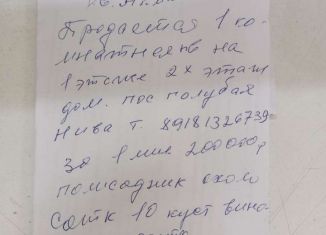 Продается 1 ко-
мнатная кв на
1 этаже 2х этаж
дом. пос полубая
Нива т. 89181326739
За 1 мил 200000р
полисадник около
Сотк 10 куст вино-